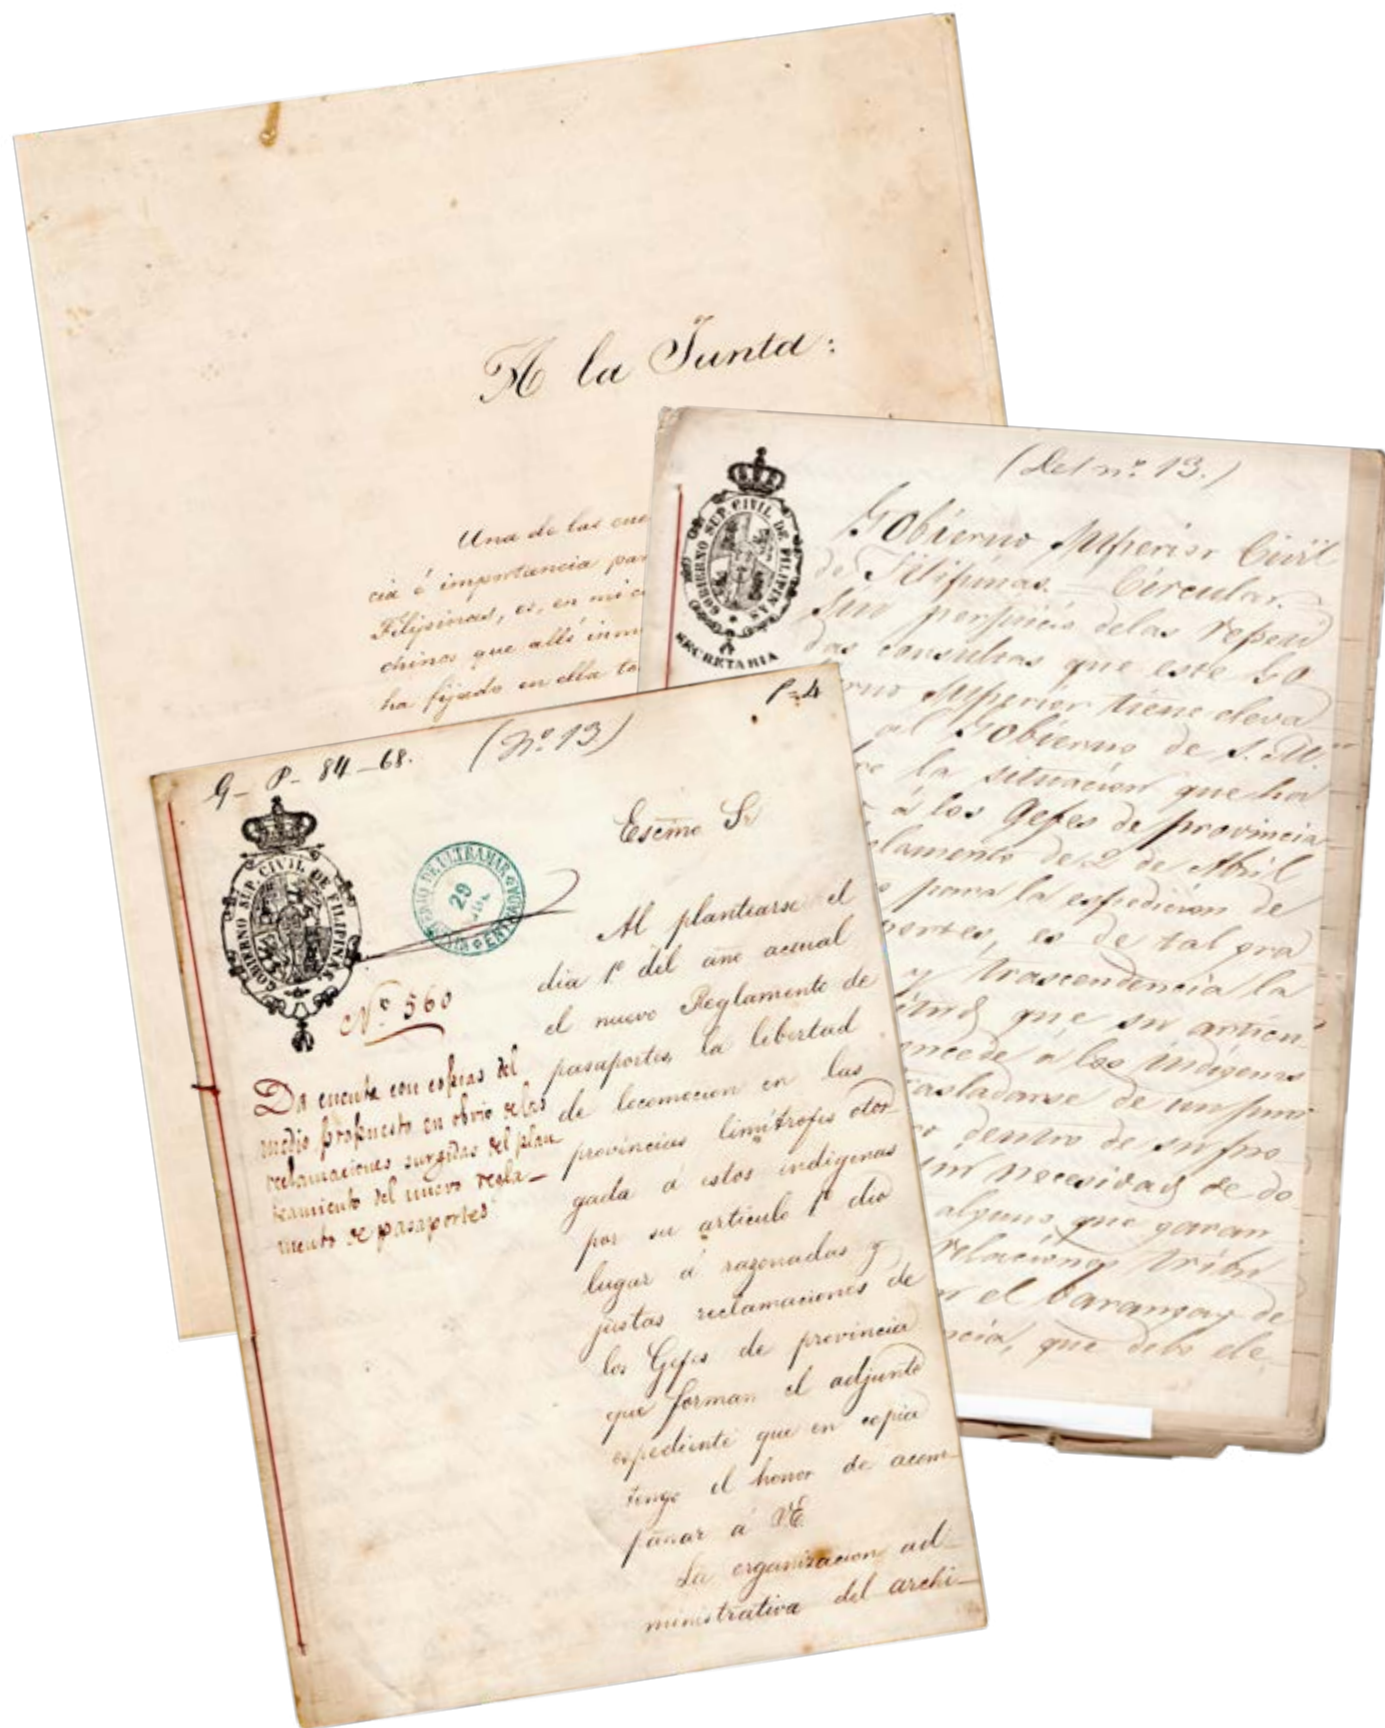 A la Junta:
Una de las cue
cia é importancia par
Filipinas, es, en mi c
chinos que allí inm
ha fijado en ella to
(Del nº 13.)
GOBIERNO SUP. CIVIL DE FILIPINAS
SECRETARIA
Gobierno Superior Civil
de Filipinas. = Circular. =
Sin perjuicio delas repeti
das consultas que este Go
rno Superior tiene eleva
al Gobierno de S. M.
re la situacion que ha
á los Gefes de provincia
lamento de 2 de Abril
para la espedicion de
portes, es de tal gra
y trascendencia la
itud que su articu
oncede á los indigenas
rasladarse de un pun
dentro de su pro
sin necesidad de do
alguno que garan
relaciones tribu
n el barangay de
ncia, que debo ele
P-4
G- P- 84-68.
(Nº 13)
GOBIERNO SUP CIVIL DE FILIPINAS
MINISTERIO DE ULTRAMAR
29
ENTRADA
Nº 560
Da cuenta con copias del
medio propuesto en obvio delas
reclamaciones surgidas del plan
teamiento del nuevo regla-
mento de pasaportes
Escmo Sr
Al plantearse el
dia 1º del año actual
el nuevo Reglamento de
pasaportes, la libertad
de locomocion en las
provincias limítrofes otor-
gada á estos indigenas
por su articulo 1º dio
lugar á razonadas y
justas reclamaciones de
los Gefes de provincia
que forman el adjunto
espediente que en copia
tengo el honor de acom-
pañar á VE.
La organizacion ad-
ministrativa del archi-